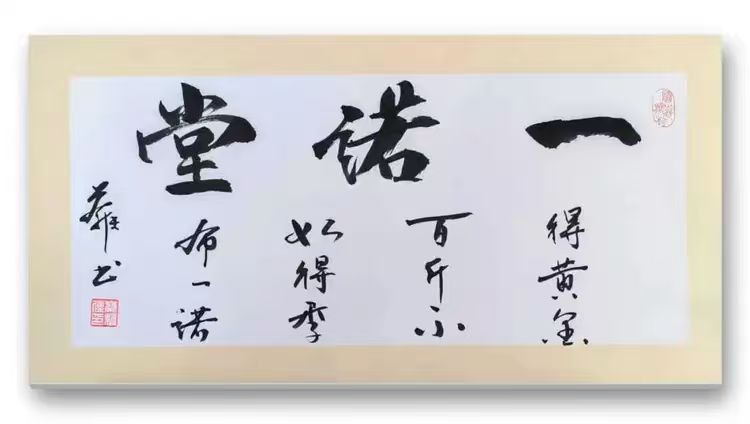 一诺堂
得黄金
百斤不
如得季
布一诺
书